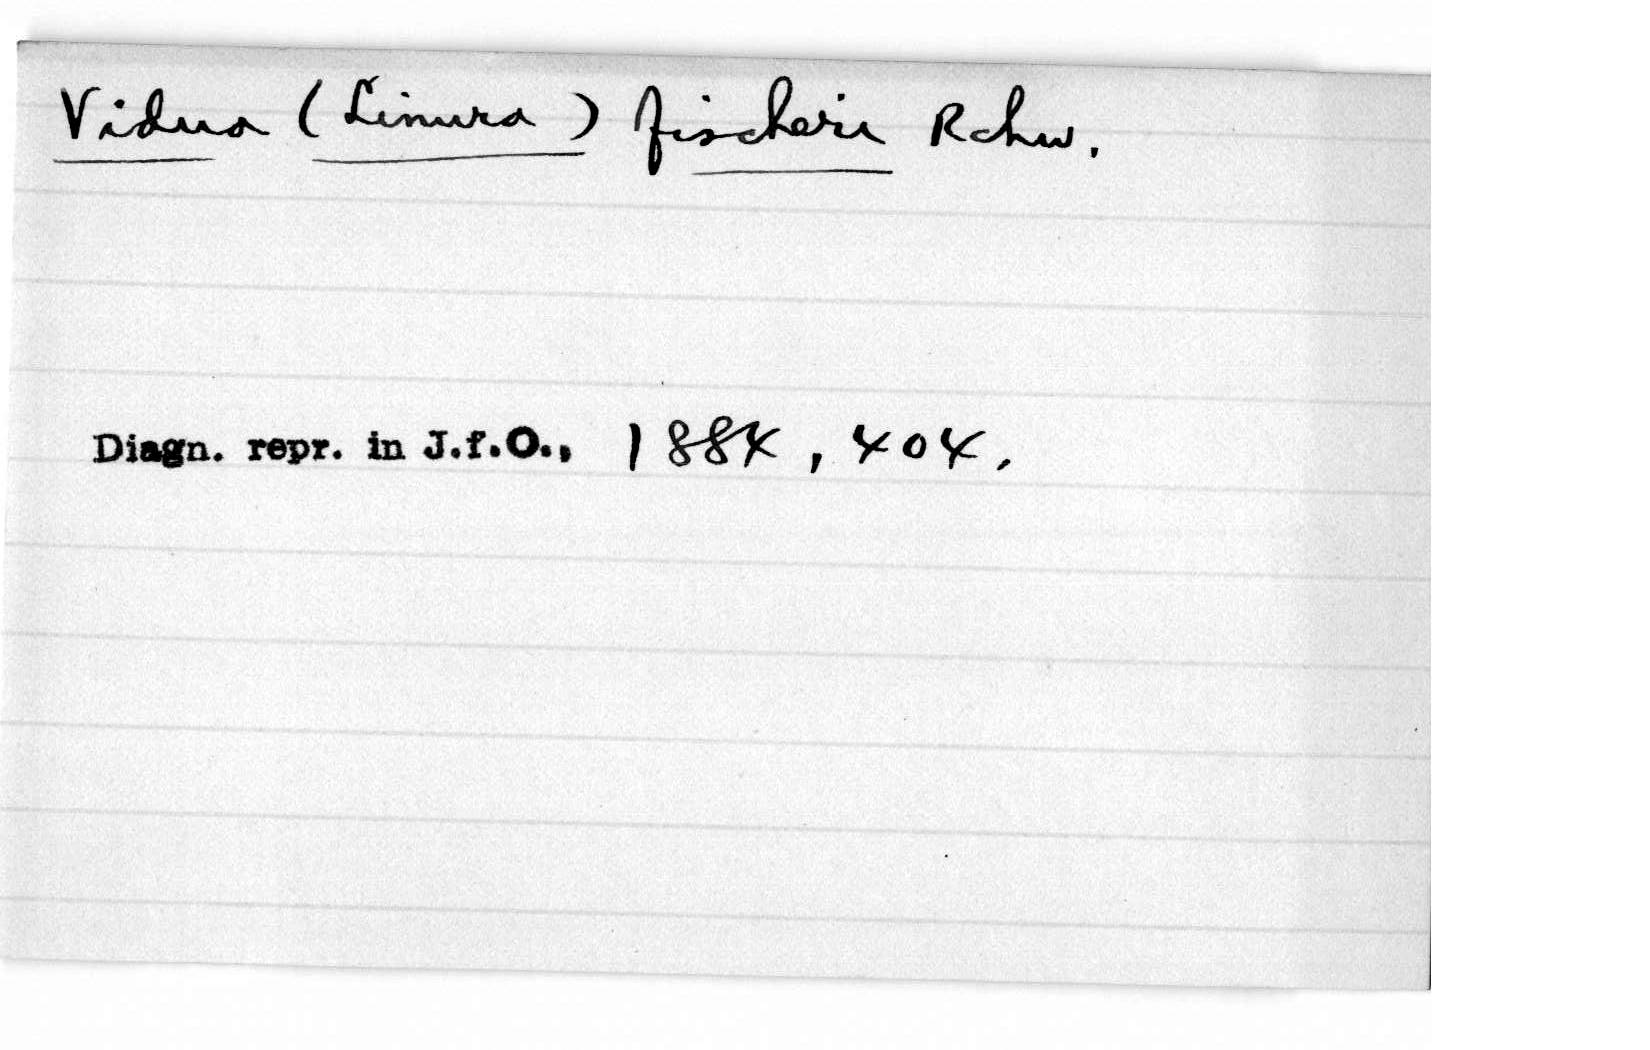 Vidua (Linura) fischeri Rchw.
Diagn. repr. in J.f.O., 1884, 404.